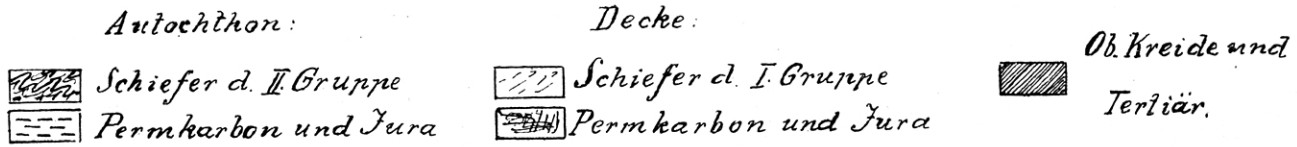 Autochthon:
Schiefer d. II. Gruppe
Permkarbon und Jura
Decke:
Schiefer d. I. Gruppe
Permkarbon und Jura
Ob. Kreide und
Tertiär.